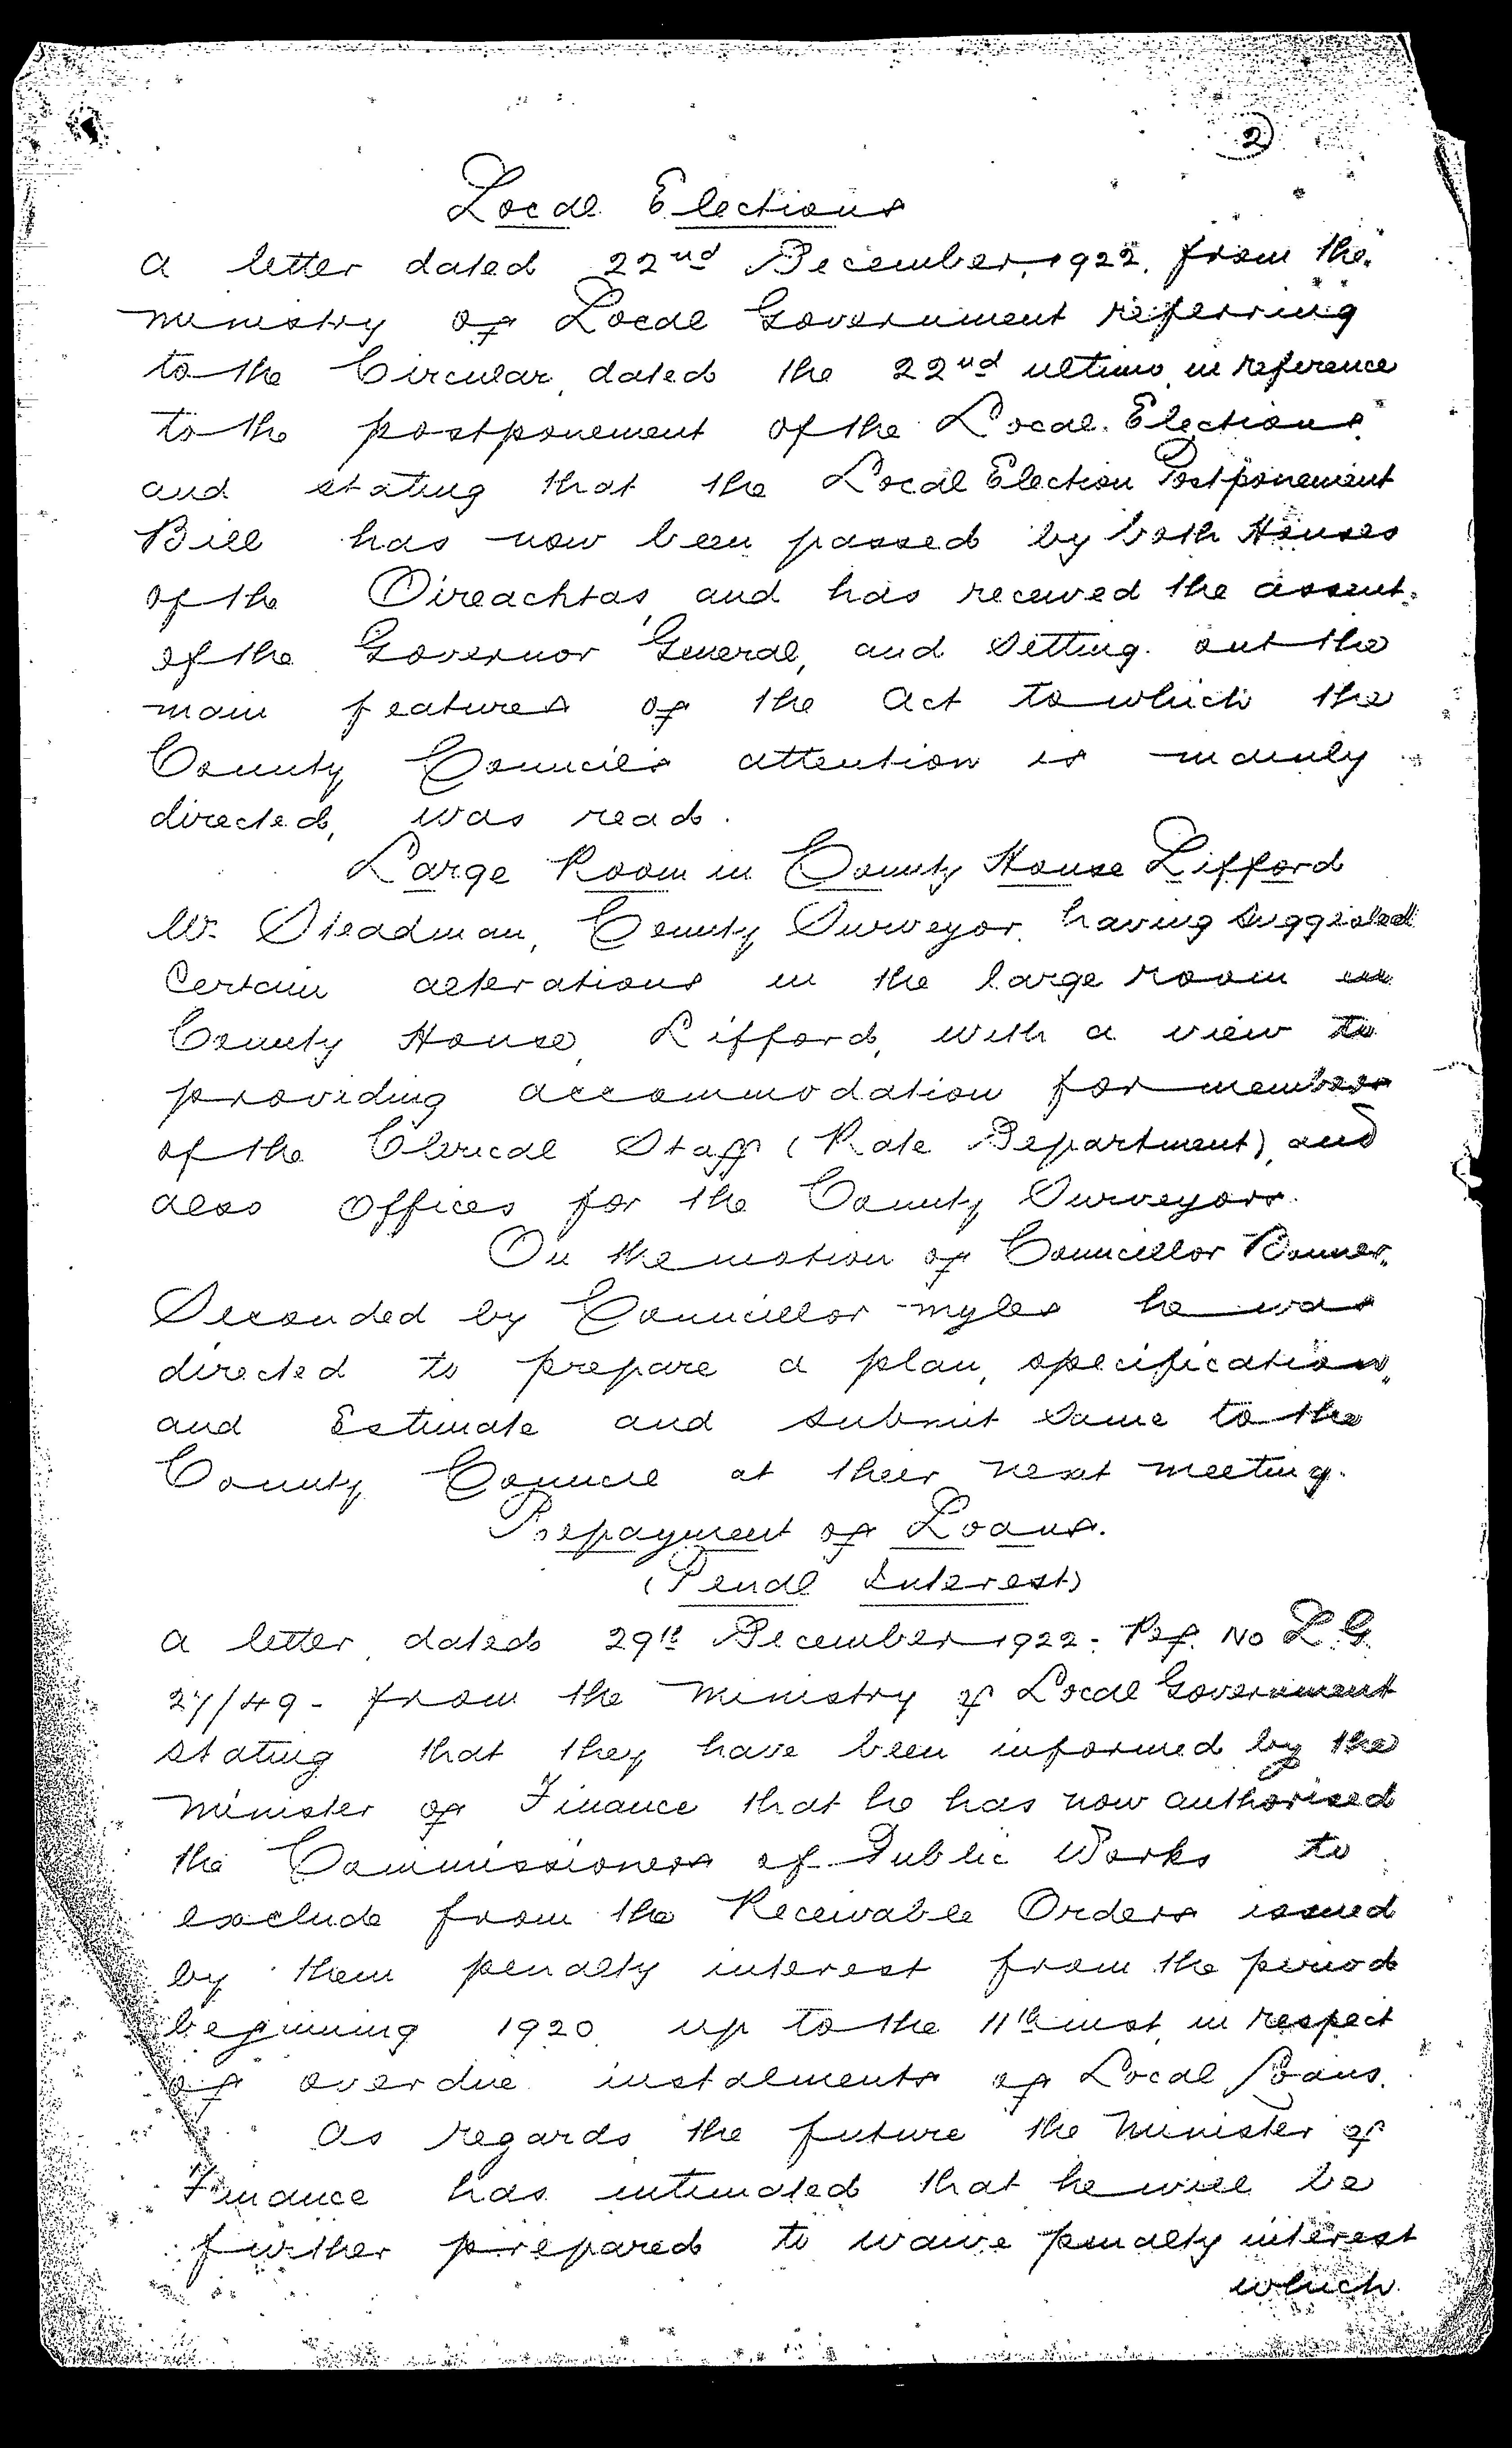 2
Local Elections
A letter dated 22nd December, 1922, from the
Ministry of Local Government referring
to the Circular, dated the 22nd ultimo, in reference
to the postponement of the Local Elections
and stating that the Local Election Postponement
Bill has now been passed by both Houses
of the Oireachtas, and has received the assent
of the Governor General, and setting out the
main features of the Act to which the
County Council's attention is mainly
directed, was read.
Large Room in County House Lifford
Mr. Steadman, County Surveyor, having suggested
certain alterations in the large room in
County House, Lifford, with a view to
providing accommodation for members
of the Clerical Staff (Rate Department), and
also offices for the County Surveyors.
On the motion of Councillor Bonner,
Seconded by Councillor Myles he was
directed to prepare a plan, specification,
and Estimate and submit same to the
County Council at their next meeting.
Repayment of Loans.
(Penal Interest)
A letter, dated 29th December 1922 - Ref. No L.G.
27/49 - from the Ministry of Local Government
stating that they have been informed by the
Minister of Finance that he has now authorised
the Commissioners of Public Works to
exclude from the Receivable Orders issued
by them penalty interest from the period
beginning 1920 up to the 11th inst, in respect
of overdue instalments of Local Loans.
As regards the future the Minister of
Finance has intimated that he will be
further prepared to waive penalty interest
which